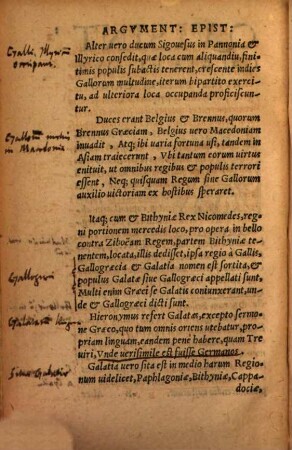 ARGVMENT: EPIST:
Alter uero ducum Sigouesus in Pannonia &
Illyrico consedit, quæ loca cum aliquandiu, fini-
timis populis subactis tenerent, crescente indies
Gallorum multitudine, iterum bipartito exerci-
tu, ad ulteriora loca occupanda proficiscun-
tur.
Duces erant Belgius & Brennus, quorum
Brennus Græciam, Belgius uero Macedoniam
inuadit, Atq; ibi uaria fortuna usi, tandem in
Asiam traiecerunt, Vbi tantum eorum uirtus
enituit, ut omnibus regibus & populis terrori
essent, Neq; quisquam Regum sine Gallorum
auxilio uictoriam ex hostibus speraret.
Itaq; cum & Bithyniæ Rex Nicomedes, regni
portionem mercedis loco, pro opera, in bello
contra Zibœam Regem, partem Bithyniæ te-
nentem, locata, illis dedisset, ipsa regio à Gallis,
Gallogræcia & Galatia nomen est sortita, &
populus Galatæ siue Gallogræci appellati sunt,
Multi enim Græci se Galatis coniunxerant, un-
de & Gallogræci dicti sunt.
Hieronymus refert Galatas, excepto sermo
ne Græco, quo tum omnis oriens utebatur, pro-
priam linguam, eandem pene habere, quam Tre
uiri, Vnde uerisimile est fuisse Germanos.
Galatia uero sita est in medio harum Regio
num uidelicet, Paphlagoniæ, Bithyniæ, Cappa
dociæ,